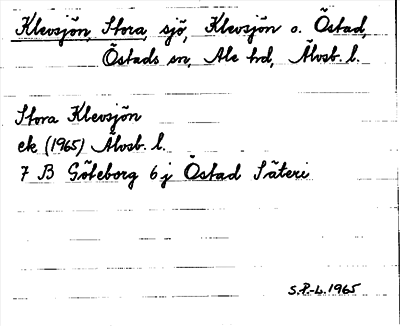 Klevsjön, Stora, sjö, Klevsjön o. Östad,
Östads sn, Ale hd, Älvsb. l.
Stora Klevsjön
ek (1965) Älvsb. l.
7 B Göteborg 6 j Östad Säteri
S.P.-L. 1965